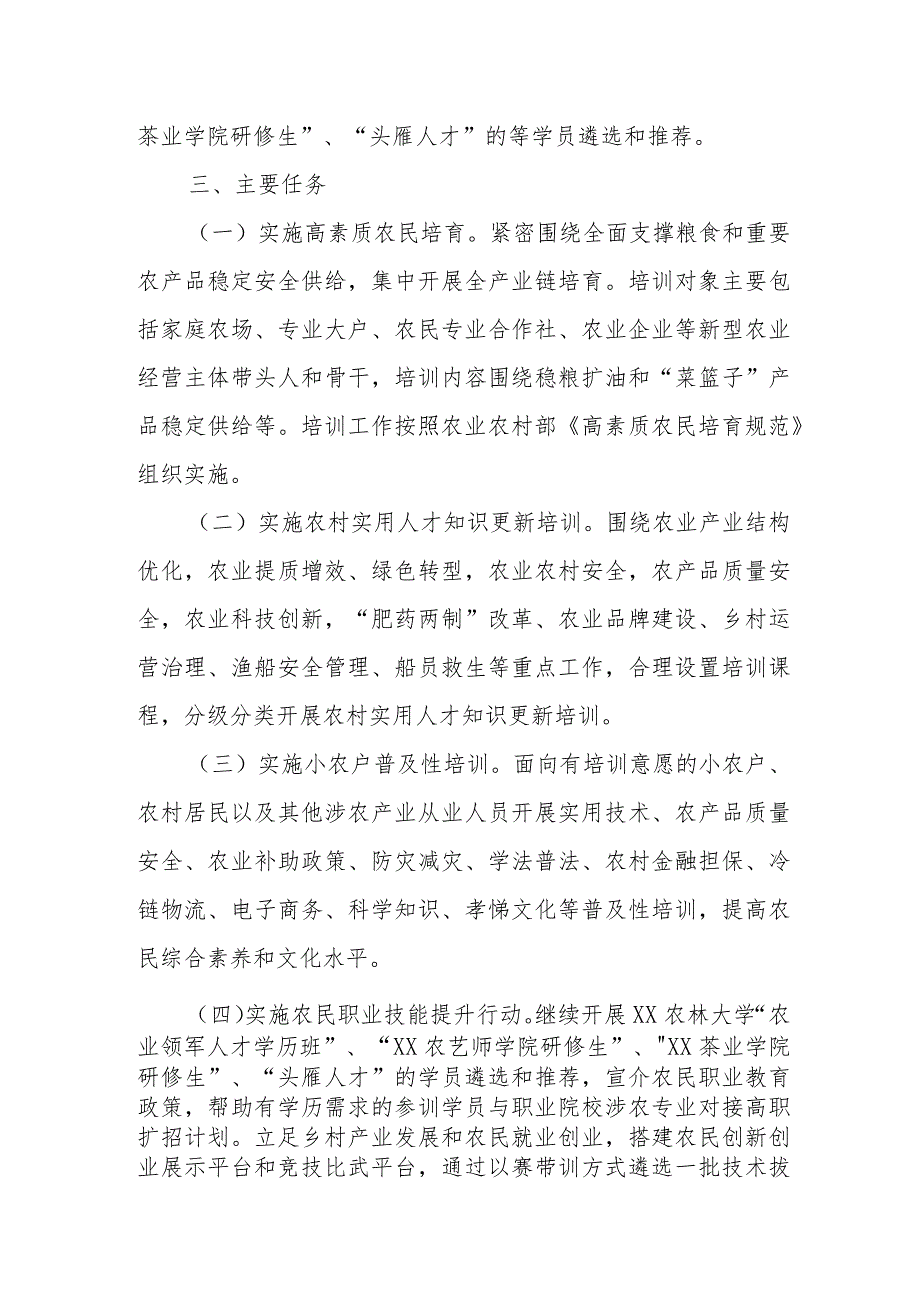 茶业学院研修生”、“头雁人才”的等学员遴选和推荐。
三、主要任务
（一）实施高素质农民培育。紧密围绕全面支撑粮食和重要
农产品稳定安全供给，集中开展全产业链培育。培训对象主要包
括家庭农场、专业大户、农民专业合作社、农业企业等新型农业
经营主体带头人和骨干，培训内容围绕稳粮扩油和“菜篮子”产
品稳定供给等。培训工作按照农业农村部《高素质农民培育规范》
组织实施。
（二）实施农村实用人才知识更新培训。围绕农业产业结构
优化，农业提质增效、绿色转型，农业农村安全，农产品质量安
全，农业科技创新，“肥药两制”改革、农业品牌建设、乡村运
营治理、渔船安全管理、船员救生等重点工作，合理设置培训课
程，分级分类开展农村实用人才知识更新培训。
（三）实施小农户普及性培训。面向有培训意愿的小农户、
农村居民以及其他涉农产业从业人员开展实用技术、农产品质量
安全、农业补助政策、防灾减灾、学法普法、农村金融担保、冷
链物流、电子商务、科学知识、孝悌文化等普及性培训，提高农
民综合素养和文化水平。
（四）实施农民职业技能提升行动。继续开展XX农林大学“农
业领军人才学历班”、“XX农艺师学院研修生”、"XX茶业学院
研修生”、“头雁人才”的学员遴选和推荐，宣介农民职业教育
政策，帮助有学历需求的参训学员与职业院校涉农专业对接高职
扩招计划。立足乡村产业发展和农民就业创业，搭建农民创新创
业展示平台和竞技比武平台，通过以赛带训方式遴选一批技术拔